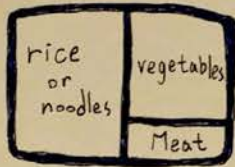 rice
or
noodles
vegetables
Meat